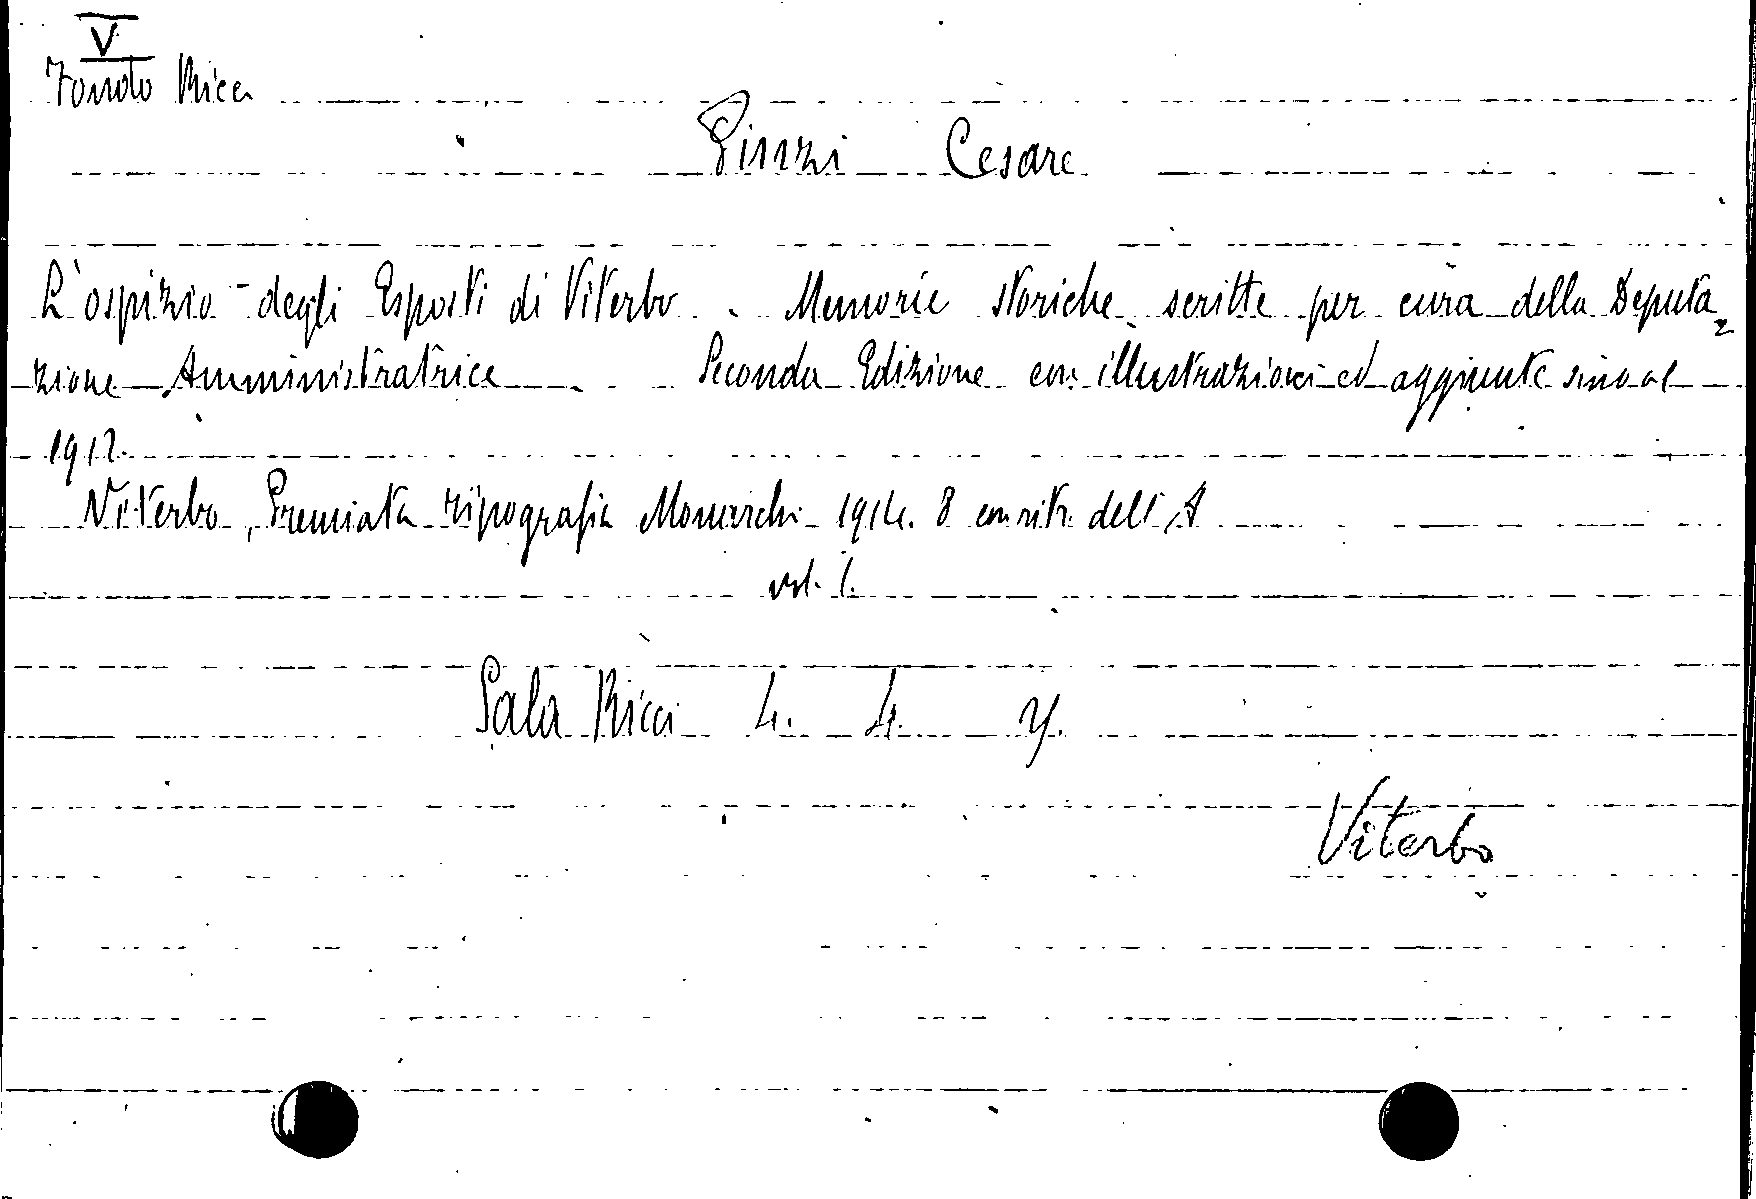 V
Fondo Ricci
Pinzi Cesare
L'ospizio degli Esposti di Viterbo . Memorie storiche scritte per cura della Deputa=
zione Amministratrice . Seconda Edizione con illustrazioni ed aggiunte sino al
1912.
Viterbo, Premiata tipografia Monarchi 1914. 8 con ritr. dell'A
vol. 1.
Sala Ricci 4. 4. 7.
Viterbo